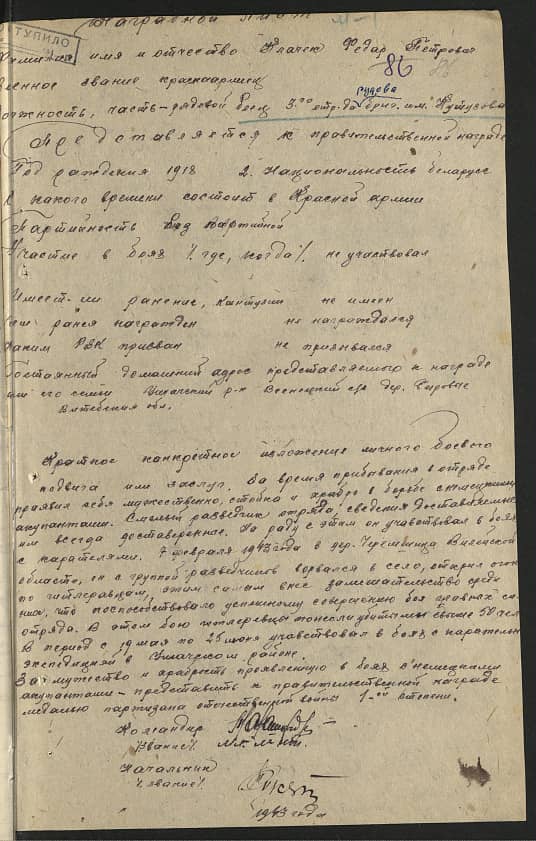 Наградной лист
ТУПИЛО
имя и отчество Клачек Федар Петровач
86
военное звание красноармеец
рядовой боец 3го отряда бриг. им. Кутузова
Представляется к правительственной награде
Год раждения 1918 2. Национальность беларусс
С какого времени состоит в Красной армии
Партийность Без партийной
Участие в боях /. где, когда /. не участвовал
Имеет-ли ранение, кантузии не имеен
ранея награжден не награждался
Каким РВК призван не призывался
Постаянный домашний адрес представляемого к награде
его семьи Ушачский р-н с/с дер.
Витебская обл.
Краткое канкретное изложение личного боевого
подвига или заслуг. За время прибывания в отряде
праявил себя мужественно, стойка и храбро в борьбе с
акупантами. Смелый разведчик отряда, сведения доставляемые
им всегда даставеренные. На ряду с этим он учавствовал в боях
с карателями. 7 февраля 1943 года в дер.
области, он с группой разведчиков ворвался в село, открил огонь
по гитлеравцам, этим самым внес замешательство среди
них, что поспосабствовало успешному совершению боя главных сил
отряда. В этом бою гитлеравцы понесли убитыми свыше 50 чел
В период с 19 мая по 25 июня учавствовал в боях с карательн
экспедицией в Ушачском районе.
За мужество и храбрость проявленную в боях с немецкими
акупантами – представить к правительственной награде
медалью партизана отечественной войны 1-ой степени.
Командир
/звание/. мл. л-нт
Начальник
/. звание/.
1943 года